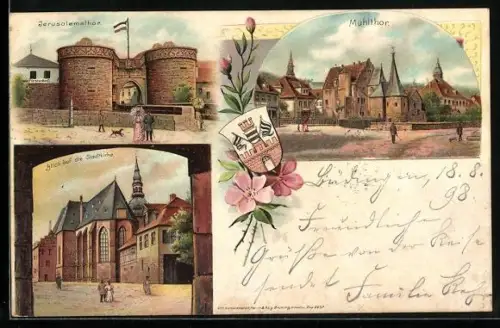 Jerusalemthor.
Mühlthor.
Blick auf die Stadtkirche
Büdingen 18.8.
98
Freundliche
Grüße von der Reise
sendet Familie